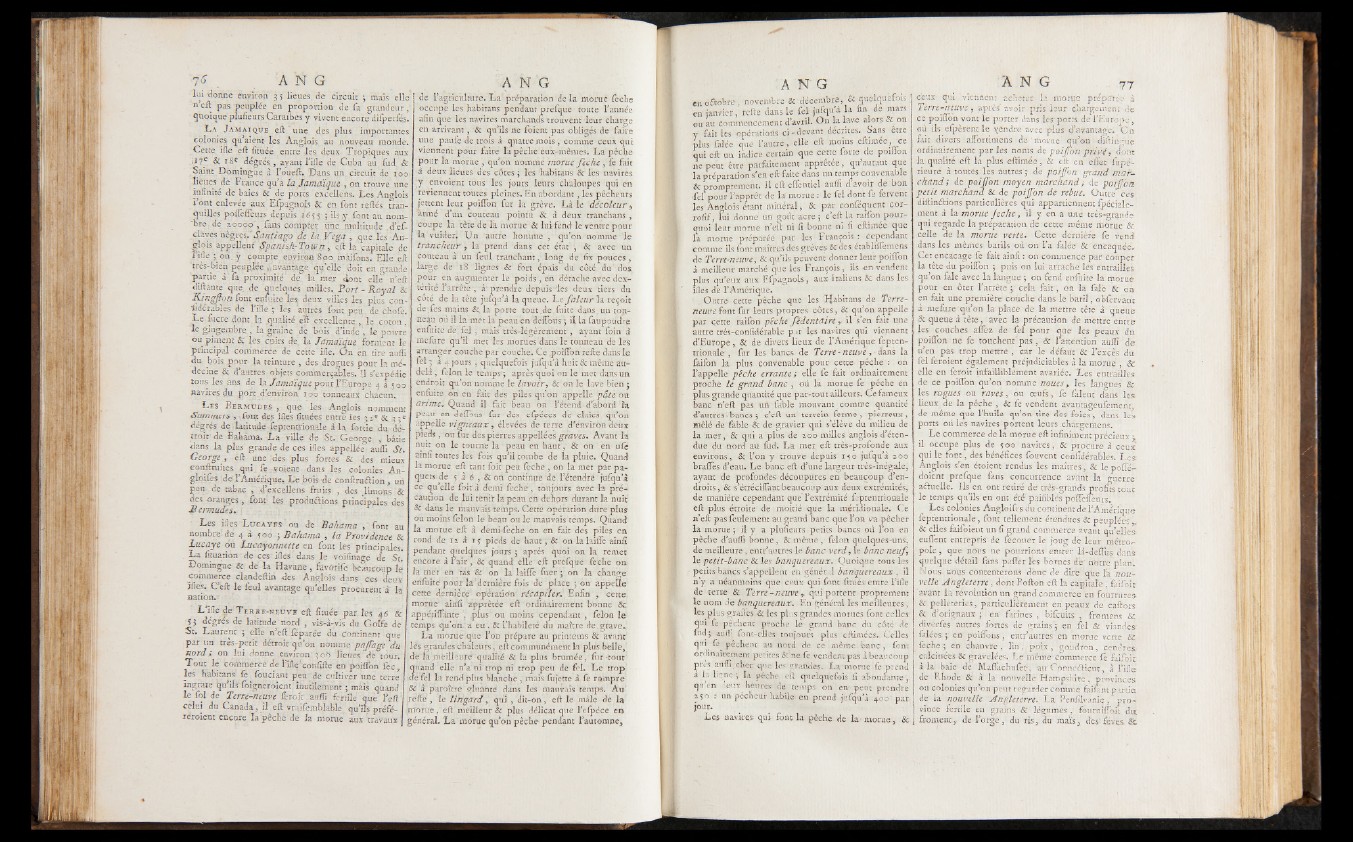 76 A N G
lui donne environ 35 lieues de circuit ; mais elle
n'eſt pas peuplée en proportion de ſa grandeur,
quoique pluſieurs Caraïbes y vivent encore diſperſés.
LA JAMAIQUE eſt une des plus importantes
colonies qu'aient les Anglois au nouveau monde.
Cette iſle eſt ſituée entre les deux Tropiques aux
17e & 18e dégrés, ayant l'iſle de Cuba au ſud &
Saint Domingue à l'oueſt. Dans un circuit de 200
lieues de France qu'a la Jamaïque, on trouve une
infinité de baies & de ports excellens. Les Anglois
l'ont enlevée aux Eſpagnols & en ſont reſtés tran-
quilles poſſeſſeurs depuis 1655 ; ils y ſont au nom-
bre de 20000, ſans compter une multitude d'eſ-
claves nègres. Santiago de la Vega, que les An-
glois appellent Spanish-Town, eſt la capitale de
l'iſle ; on y compte environ 800 maiſons. Elle eſt
très-bien peuplée, avantage qu'elle doit en grande
partie à ſa proximité de la mer dont elle n'eſt
diſtante que de quelques milles. Port-Royal &
Kingſton ſont enſuite les deux villes les plus con-
ſidérables de l'iſle ; les autres ſont peu de choſe.
Le ſucre dont la qualité eſt excellente, le coton,
le gingembre, la graine de bois d'inde, le poivre
ou piment & les cuirs de la Jamaïque forment le
principal commerce de cette iſle. On en tire auſſi
du bois pour la teinture, des drogues pour la mé-
decine & d'autres objets commerçables. Il s'expédie
tous les ans de la Jamaïque pour l'Europe 4 à 500
navires du port d'environ 200 tonneaux chacun.
LES BERMUDES, que les Anglois nomment
Summers, ſont des iſles ſituées entre les 32e & 33e
dégrés de latitude ſeptentrionale à la ſortie du dé-
troit de Bahama. La ville de St. George, bâtie
dans la plus grande de ces iſles appellée auſſi St.
George, eſt une des plus fortes & des mieux
conſtruites qui ſe voient dans les colonies An-
gloiſes de l'Amérique. Le bois de conſtruction, un
peu de tabac, d'excellens fruits, des limons &
des oranges, ſont les productions principales des
Bermudes.
Les iſles LUCAYES ou de Bahama, ſont au
nombre de 4 à 500 ; Bahama, la Providence &
Lucaye ou Lucayonnette en ſont les principales.
La ſituation de ces iſles dans le voiſinage de St.
Domingue & de la Havane, favoriſe beaucoup le
commerce clandeſtin des Anglois dans ces deux
iſles. C'eſt le ſeul avantage qu'elles procurent à la
nation.
L'iſle de TERRE-NEUVE eſt ſituée par les 46 &
53 dégrés de latitude nord, vis-à-vis du Golfe de
St. Laurent ; elle n'eſt ſéparée du continent que
par un très-petit détroit qu'on nomme paſſage du
nord ; on lui donne environ 300 lieues de tour.
Tout le commerce de l'iſle conſiſte en poiſſon ſec,
les habitans ſe ſouciant peu de cultiver une terre
ingrate qu'ils ſoigneroient inutilement ; mais quand
le ſol de Terre-neuve ſeroit auſſi fertile que l'eſt
celui du Canada, il eſt vraiſemblable qu'ils préfé-
réroient encore la pêche de la morue aux travaux
A N G
de l'agriculture. La préparation de la morue ſeche
occupe les habitans pendant preſque toute l'année
afin que les navires marchands trouvent leur charge
en arrivant, & qu'ils ne ſoient pas obligés de faire
une pauſe de trois à quatre mois, comme ceux qui
viennent pour faire la pêche eux-mêmes. La pêche
pour la morue, qu'on nomme morue ſeche, ſe fait
à deux lieues des côtes ; les habitans & les navires
y envoient tous les jours leurs chaloupes qui en
reviennent toutes pleines. En abordant, les pêcheurs
jettent leur poiſſon ſur la grève. Là le décoleur,
armé d'un couteau pointu & à deux tranchans,
coupe la tête de la morue & lui fend le ventre pour
la vuider. Un autre homme, qu'on nomme le
trancheur, la prend dans cet état, & avec un
couteau à un ſeul tranchant, long de ſix pouces,
large de 18 lignes & fort épais du côté du dos
pour en augmenter le poids, en détache avec dex-
térité l'arrête, à prendre depuis les deux tiers du
côté de la tête juſqu'à la queue. Le ſaleur la reçoit
de ſes mains & la porte tout de ſuite dans un ton-
neau où il la met la peau en deſſous ; il la ſaupoudre
enſuite de ſel, mais très-légèrement, ayant ſoin à
meſure qu'il met les morues dans le tonneau de les
arranger couche par couche. Ce poiſſon reſte dans le
ſel 3 à 4 jours, quelquefois juſqu'à huit & même au-
delà, ſelon le temps ; après quoi on le met dans un
endroit qu'on nomme le lavoir, & on le lave bien ;
enſuite on en fait des piles qu'on appelle pâte ou
arime. Quand il fait beau on l'étend d'abord la
peau en deſſous ſur des eſpèces de claies qu'on
appelle vigneaux, élevées de terre d'environ deux
pieds, ou ſur des pierres appellées graves. Avant la
nuit on le tourne la peau en haut, & on en uſe
ainſi toutes les fois qu'il tombe de la pluie. Quand
la morue eſt tant ſoit peu ſeche, on la met par pa-
quets de 5 à 6, & on continue de l'étendre juſqu'à
ce qu'elle ſoit à demi ſeche, toujours avec la pré-
caution de lui tenir la peau en dehors durant la nuit
& dans le mauvais temps. Cette opération dure plus
ou moins ſelon le beau ou le mauvais temps. Quand
la morue eſt à demi-ſeche on en fait des piles en
rond de 12 à 15 pieds de haut, & on la laiſſe ainſi
pendant quelques jours ; après quoi on la remet
encore à l'air, & quand elle eſt preſque ſeche on
la met en tas & on la laiſſe ſuer ; on la change
enſuite pour la dernière fois de place ; on appelle
cette dernière opération récapiler. Enfin, cette
morue ainſi apprêtée eſt ordinairement bonne &
appétiſſante, plus ou moins cependant, ſelon le
temps qu'on a eu, & l'habileté du maître de grave.
La morue que l'on prépare au printems & avant
les grandes chaleurs, eſt communément la plus belle,
de la meilleure qualité & la plus brumée, ſur-tout
quand elle n'a ni trop ni trop peu de ſel. Le trop
de ſel la rend plus blanche, mais ſujette à ſe rompre
& à paroître gluante dans les mauvais temps. Au
reſte, le lingard, qui, dit-on, eſt le mâle de la
morue, eſt meilleur & plus délicat que l'eſpéce en
général. La morue qu'on pêche pendant l'automne,
A N G
en octobre, novembre & décembre, & quelquefois
en janvier, reſte dans le ſel juſqu'à la fin de mars
ou au commencement d'avril. On la lave alors & on
y fait les opérations ci-devant décrites. Sans être
plus ſalée que l'autre, elle eſt moins eſtimée, ce
qui eſt un indice certain que cette ſorte de poiſſon
ne peut être parfaitement apprêtée, qu'autant que
la préparation s'en eſt faite dans un temps convenable
& promptement. Il eſt eſſentiel auſſi d'avoir de bon
ſel pour l'apprêt de la morue : le ſel dont ſe ſervent
les Anglois étant minéral, & par conſéquent cor-
roſif, lui donne un goût acre ; c'eſt la raiſon pour-
quoi leur morue n'eſt ni ſi bonne ni ſi eſtimée que
la morue préparée par les François : cependant
comme ils ſont maîtres des grèves & des établiſſemens
de Terre-neuve, & qu'ils peuvent donner leur poiſſon
à meilleur marché que les François, ils en vendent
plus qu'eux aux Eſpagnols, aux italiens & dans les
iſles de l'Amérique.
Outre cette pêche que les Habitans de Terre-
neuve font ſur leurs propres côtes, & qu'on appelle
par cette raiſon pêche ſédentaire, il s'en fait une
autre très-conſidérable par les navires qui viennent
d'Europe, & de divers lieux de l'Amérique ſepten-
trionale, ſur les bancs de Terre-neuve, dans la
ſaiſon la plus convenable pour cette pêche : on
l'appelle pêche errante ; elle ſe fait ordinairement
proche le grand banc, où la morue ſe pêche en
plus grande quantité que par-tout ailleurs. Ce fameux
banc n'eſt pas un ſable mouvant comme quantité
d'autres bancs ; c'eſt un terrein ferme, pierreux,
mêlé de ſable & de gravier qui s'éleve du milieu de
la mer, & qui a plus de 200 milles anglois d'éten-
due du nord au ſud. La mer eſt très-profonde aux
environs, & l'on y trouve depuis 150 juſqu'à 200
braſſes d'eau. Le banc eſt d'une largeur très-inégale,
ayant de profondes découpures en beaucoup d'en-
droits, & s'étréciſſant beaucoup aux deux extrémités,
de manière cependant que l'extrémité ſeptentrionale
eſt plus étroite de moitié que la méridionale. Ce
n'eſt pas ſeulement au grand banc que l'on va pêcher
la morue ; il y a pluſieurs petits bancs où l'on en
pêche d'auſſi bonne, & même, ſelon quelques-uns,
de meilleure, entr'autres le banc verd, le banc neuf,
le petit-banc & les banquereaux. Quoique tous les
petits bancs s'appellent en général banquereaux, il
n'y a néanmoins que ceux qui ſont ſitués entre l'iſle
de terre & Terre-neuve, qui portent proprement
le nom de banquereaux. En général les meilleures,
les plus graſſes & les plus grandes morues ſont celles
qui ſe pêchent proche le grand banc du côté du
ſud ; auſſi ſont-elles toujours plus eſtimées. Celles
qui ſe pêchent au nord de ce même banc, ſont
ordinairement petites & ne ſe vendent pas à beaucoup
près auſſi cher que les grandes. La morue ſe prend
à la ligne ; la pêche eſt quelquefois ſi abondante,
qu'en deux heures de temps on en peut prendre
250 : un pêcheur habile en prend juſqu'à 400 par
jour.
Les navires qui font la pêche de la morue, &
A N G 77
ceux qui viennent acheter la morue préparée à
Terre-neuve, après avoir pris leur chargement de
ce poiſſon vont le porter dans les ports de l'Europe,
où ils eſpèrent le vendre avec plus d'avantage. On
fait divers aſſortimens de morue qu'on diſtingue
ordinairement par les noms de poiſſon privé, dont
la qualité eſt la plus eſtimée, & eſt en effet ſupé-
rieure à toutes les autres ; de poiſſon grand mar-
chand ; de poiſſon moyen marchand ; de poiſſon
petit marchand & de poiſſon de rebut. Outre ces
diſtinctions particulières qui appartiennent ſpéciale-
ment à la morue ſeche, il y en a une très-grande
qui regarde la préparation de cette même morue &
celle de la morue verte. Cette derniére ſe vend
dans les mêmes barils où on l'a ſalée & encaquée.
Cet encacage ſe fait ainſi : on commence par couper
la tête du poiſſon ; puis on lui arrache les entrailles
qu'on ſale avec la langue ; on fend enſuite la morue
pour en ôter l'arrête ; cela fait, on la ſale & on
en fait une première couche dans le baril, obſervant
à meſure qu'on la place de la mettre tête à queue
& queue à tête, avec la précaution de mettre entre
les couches aſſez de ſel pour que les peaux du
poiſſon ne ſe touchent pas, & l'attention auſſi de
n'en pas trop mettre, car le défaut & l'excès du
ſel ſeroient également préjudiciables à la morue, &
elle en ſeroit infailliblement avariée. Les entrailles
de ce poiſſon qu'on nomme noues, les langues &
les rogues ou raves, ou œufs, ſe ſalent dans les
lieux de la pêche, & ſe vendent avantageuſement,
de même que l'huile qu'on tire des foies, dans les
ports où les navires portent leurs chargemens.
Le commerce de la morue eſt infiniment précieux ;
il occupe plus de 500 navires, & procure à ceux
qui le font, des bénéfices ſouvent conſidérables. Les
Anglois s'en étoient rendus les maîtres, & le poſſé-
doient preſque ſans concurrence avant la guerre
actuelle. Ils en ont retiré de très-grands profits tout
le temps qu'ils en ont été paiſibles poſſeſſeurs.
Les colonies Angloiſes du continent de l'Amérique
ſeptentrionale, ſont tellement étendues & peuplées,
& elles faiſoient un ſi grand commerce avant qu'elles
euſſent entrepris de ſecouer le joug de leur métro-
pole, que nous ne pourrions entrer là-deſſus dans
quelque détail ſans paſſer les bornes de notre plan.
Nous nous contenterons donc de dire que la nou-
velle Angleterre, dont Boſton eſt la capitale, faiſoit
avant la révolution un grand commerce en fourrures
& pelleteries, particulièrement en peaux de caſtors
& d'orignaux ; en farines, biſcuits, froment &
diverſes autres ſortes de grains ; en ſel & viandes
ſalées ; en poiſſons, entr'autres en morue verte &
ſeche ; en chanvre, lin, poix, goudron, cendres
calcinées & gravelées. Le même commerce ſe faiſoit
à la baie de Maſſachuſet, au Connecticut, à l'iſle
de Rhode & à la nouvelle Hampshire, provinces
ou colonies qu'on peut regarder comme faiſant partie
de la nouvelle Angleterre. La Penſilvanie, pro-
vince fertile en grains & légumes, fourniſſoit du
froment, de l'orge, du ris, du maïs, des féves &